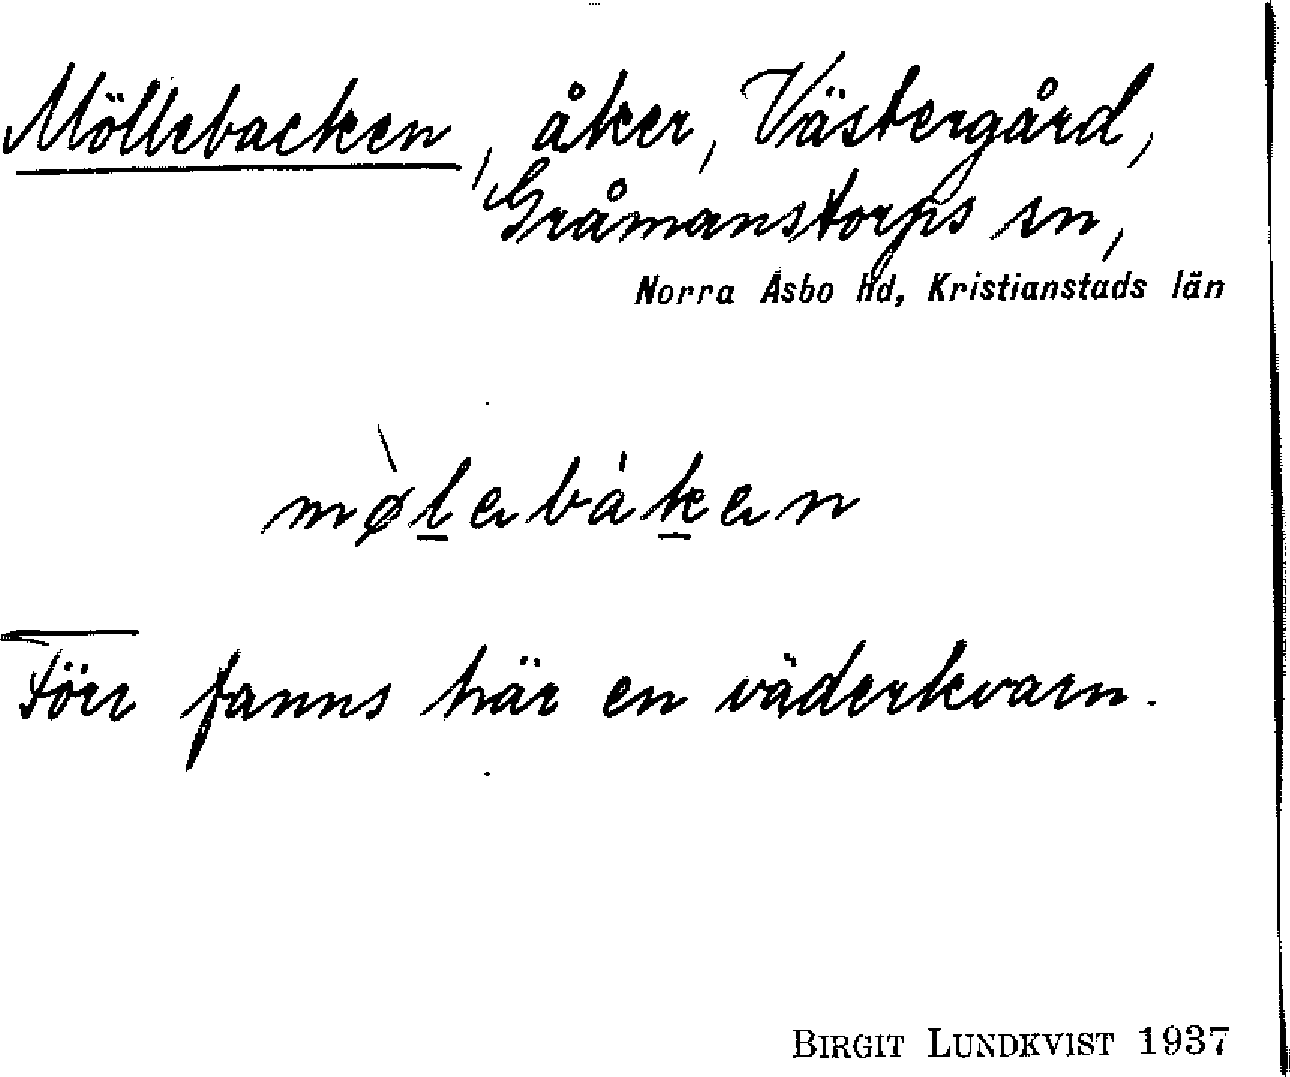 Möllebacken, åker, Västergård,
Gråmanstorps sn,
Norra Åsbo Hd, Kristianstads län
mø̀lebáken
Förr fanns här en väderkvarn.
BIRGIT LUNDKVIST 1937